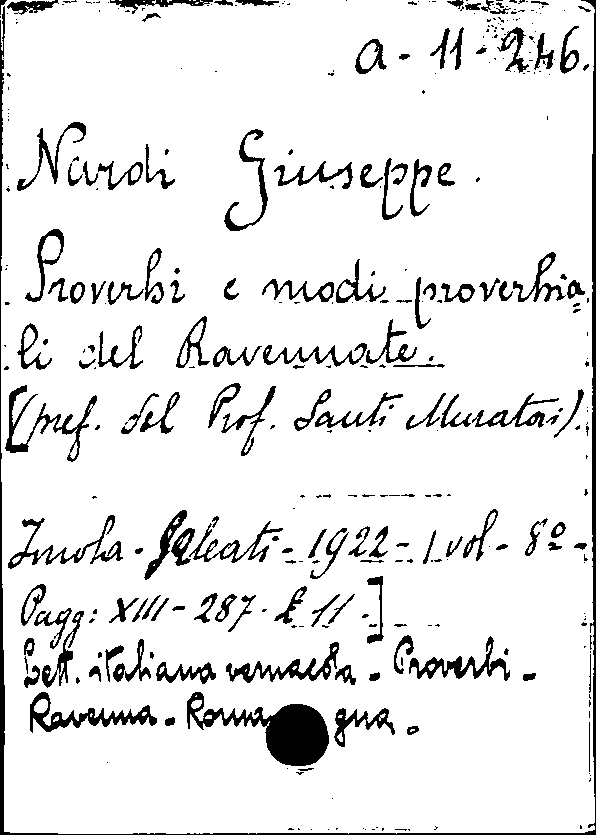 a - 11 - 246.
Nardi Giuseppe.
Proverbi e modi proverbia=
li del Ravennate.
[(pref. del Prof. Santi Muratori).
Imola - Galeati - 1922 - 1 vol - 8º -
Pagg: XIII - 287 - £ 11 -]
Lett. italiana vernacola - Proverbi -
Ravenna - Romagna.